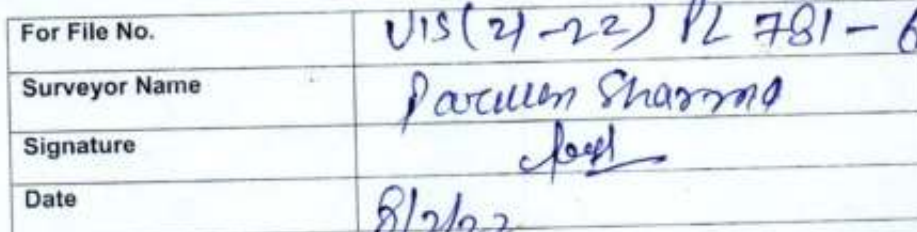 For File No. VIS(21-22) PL 781-6
Surveyor Name Parveen Sharma
Signature
Date 8/2/22